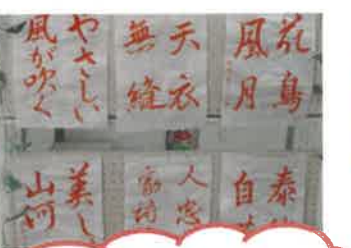 花鳥
風月
天衣
無縫
やさしい
風が吹く
泰
自
人
美し
山河